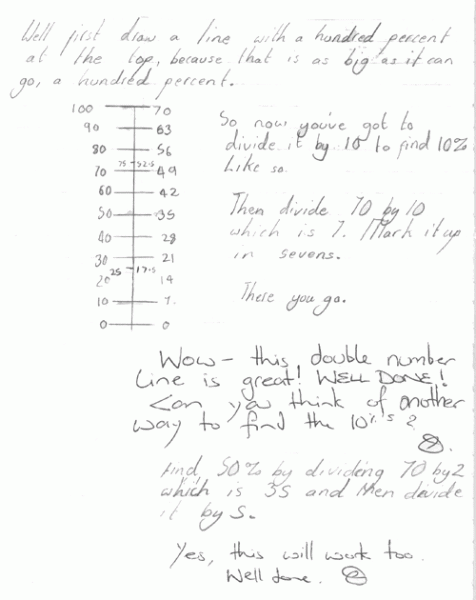 Well first draw a line with a hundred percent
at the top, because that is as big as it can
go, a hundred percent.
100 70
90 63
80 56
75 52.5
70 49
60 42
50 35
40 28
30 21
25 17.5
20 14
10 7.
0 0
So now you've got to
divide it by 10 to find 10%
Like so.
Then divide 70 by 10
which is 7. Mark it up
in sevens.
There you go.
Wow - this double number
line is great! WELL DONE!
Can you think of another
way to find the 10%'s?
find 50% by dividing 70 by 2
which is 35 and then devide
it by 5.
Yes, this will work too.
Well done.